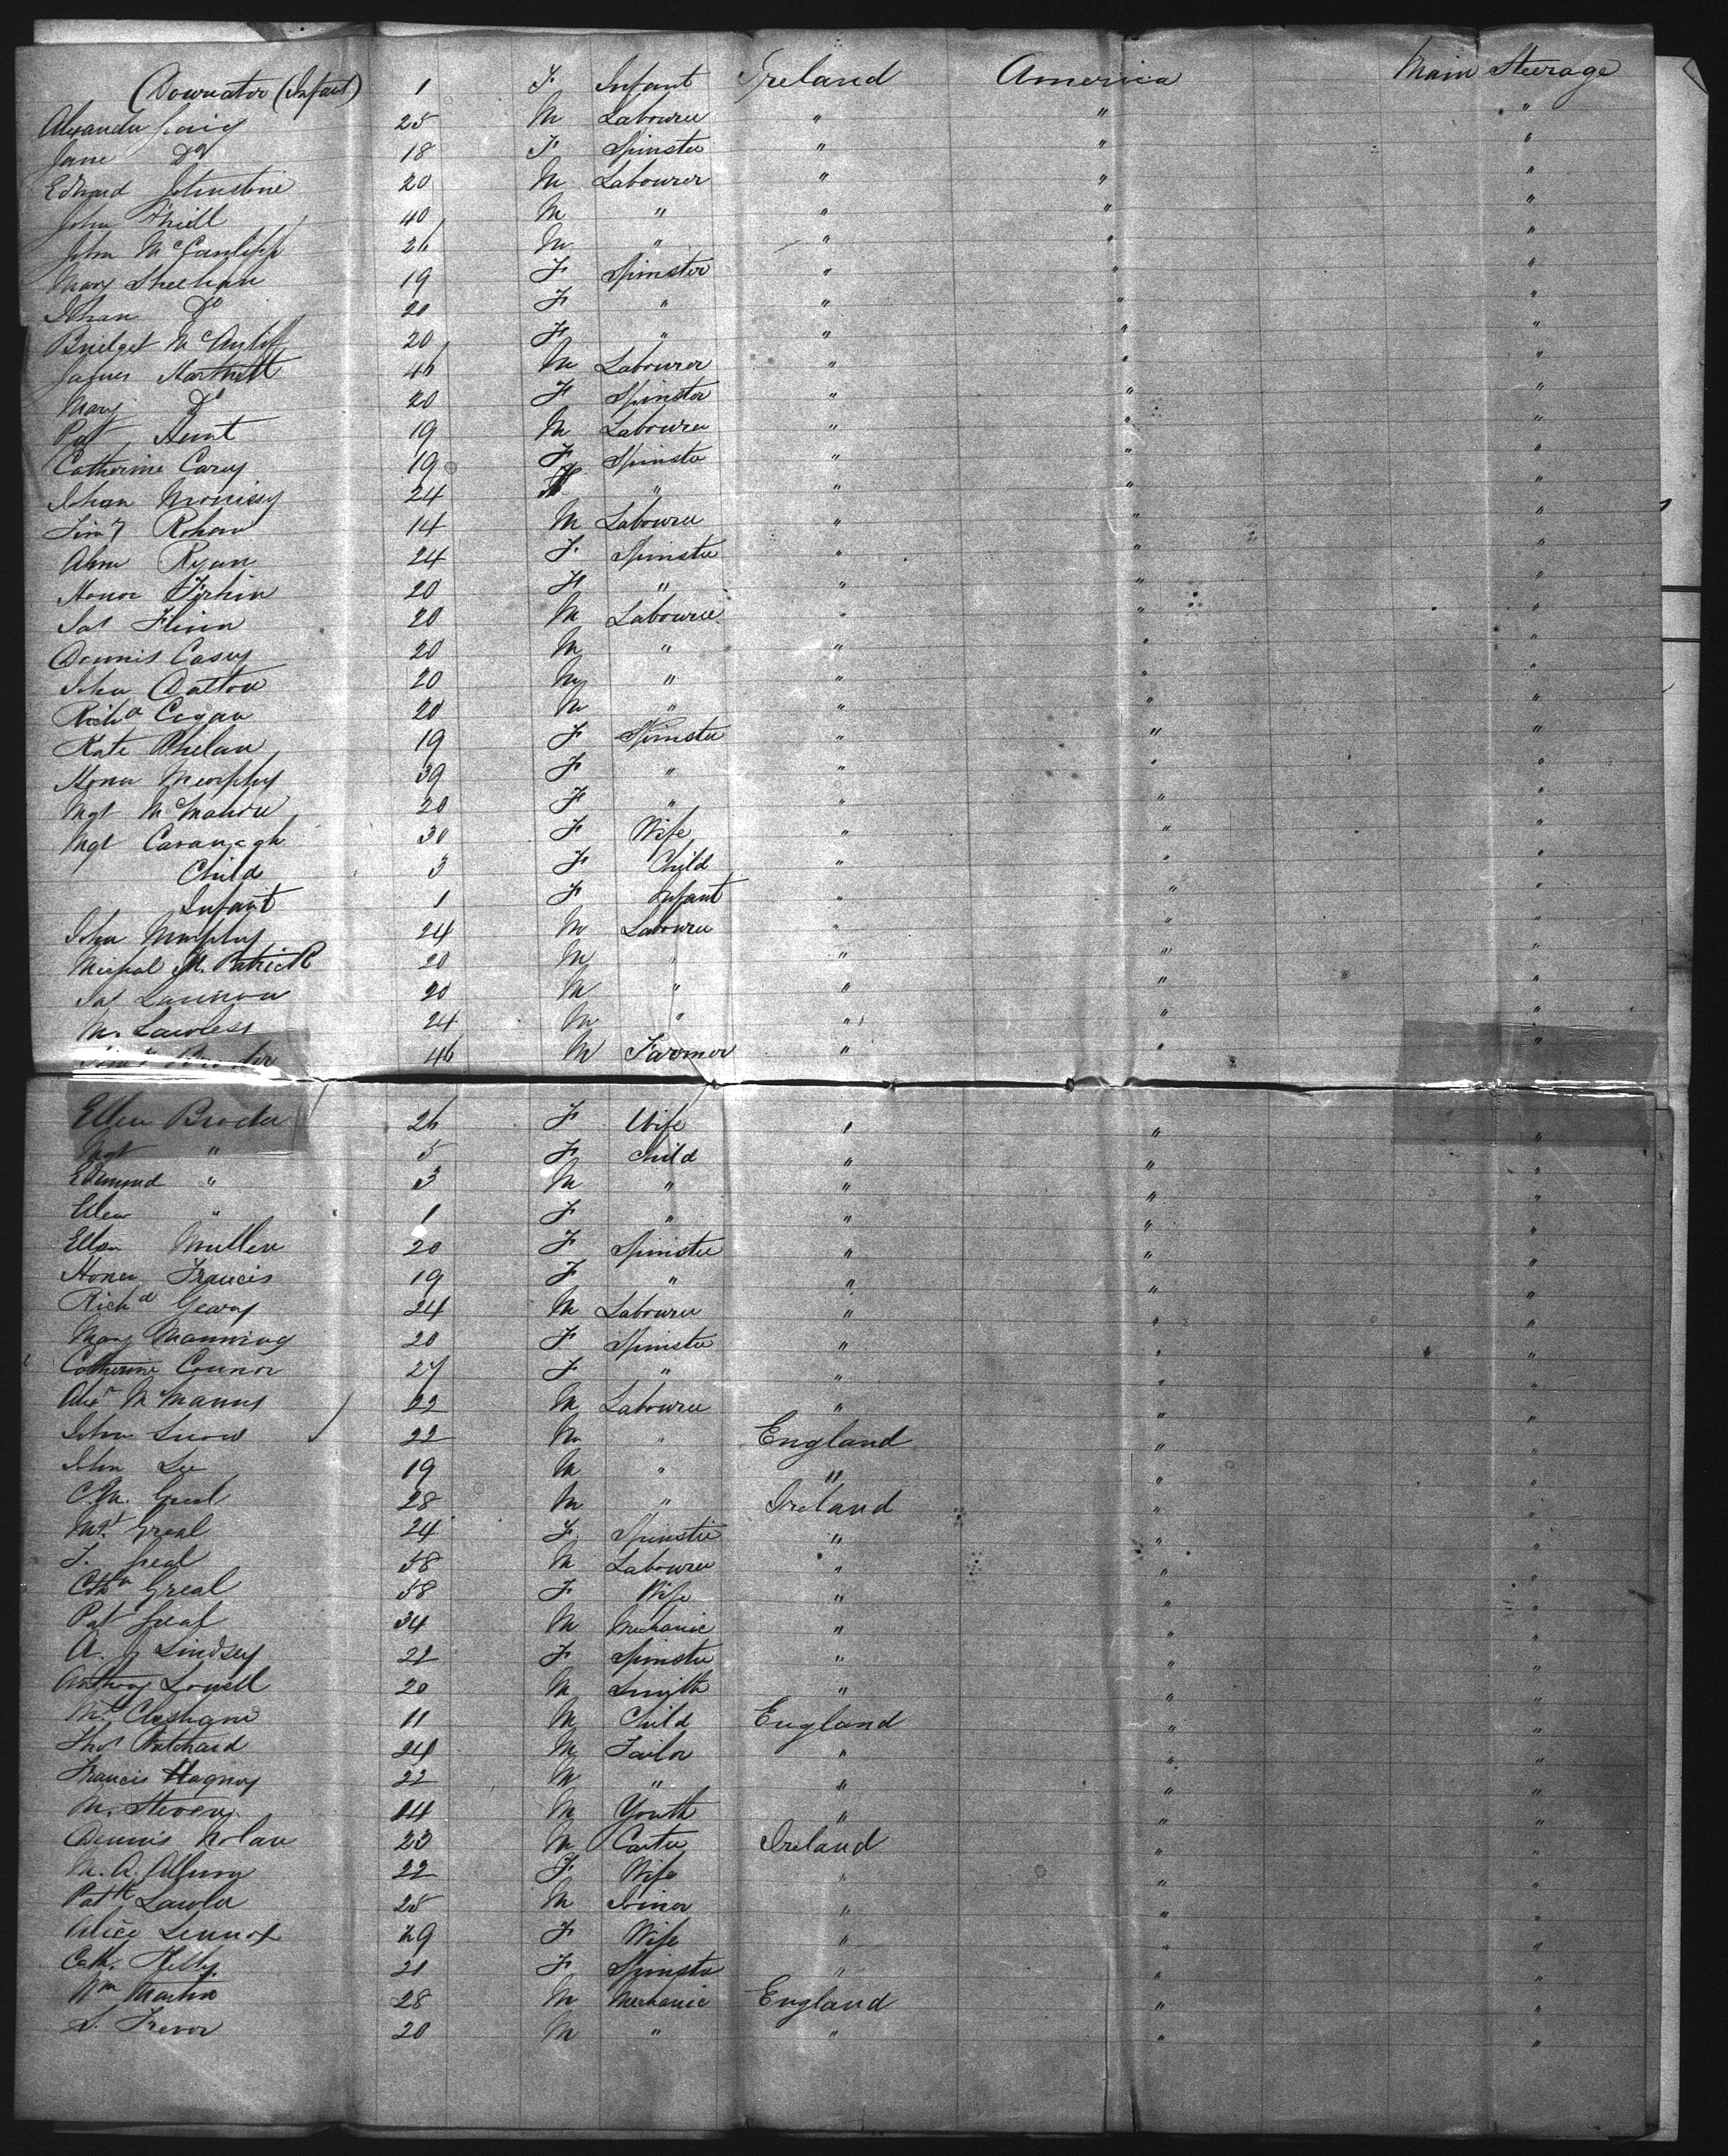 (Infant) 1 F Infant Ireland America Main Steerage
Alexander 25 M Labourer " " "
Jane Do 18 F Spinster " " "
Edward Johnstone 20 M Labourer " " "
John 40 M " " " "
John 26 M " " " "
Mary Sheehan 19 F Spinster " " "
Johan Do 20 F " " " "
Bridget McAuliff 20 F " " " "
James Hartnett 46 M Labourer " " "
Mary Do 20 F Spinster " " "
Pat Hunt 19 M Labourer " " "
Catherine Carey 19 F Spinster " " "
Johan Morrissy 24 F " " " "
Timy Rohan 14 M Labourer " " "
Ann Ryan 24 F Spinster " " "
Honor 20 F " " " "
Jas Flinn 20 M Labourer " " "
Dennis Casey 20 M " " " "
John Dalton 20 M " " " "
Richd Cogan 20 M " " " "
Kate Phelan 19 F Spinster " " "
Honor Murphy 39 F " " " "
Mgt McMahon 20 F " " " "
Mgt Cavanagh 30 F Wife " " "
Child 3 F Child " " "
Infant 1 F Infant " " "
John Murphy 24 M Labourer " " "
M. Patrick 20 M " " " "
Jas Lannon 20 M " " " "
M. Lawless 24 M " " " "
46 M Farmer " " "
Ellen Broder 26 F Wife " " "
Mgt " 5 F Child " " "
Edmund " 3 M " " " "
Ellen " 1 F " " " "
Ellen Mullen 20 F Spinster " " "
Honor Francis 19 F " " " "
Richd Geary 24 M Labourer " " "
Mary Manning 20 F Spinster " " "
Catherine Connor 27 F " " " "
Alexr McManus 22 M Labourer " " "
John Snow 22 M " England " "
John Lee 19 M " " " "
C.M. Greal 28 M " Ireland " "
Mgt Greal 24 F Spinster " " "
T. Greal 58 M Labourer " " "
Cathn Greal 58 F Wife " " "
Pat Greal 34 M Mechanic " " "
A. J Lindsey 22 F Spinster " " "
Anthony Lowell 20 M Smith " " "
11 M Child England " "
Thos Pritchard 24 M Tailor " " "
Francis Hagney 22 M " " " "
M. Steven 14 M Youth " " "
Dennis Nolan 23 M Carter Ireland " "
M. A. 22 F Wife " " "
Patk Lawler 25 M Joiner " " "
Alice Lennox 29 F Wife " " "
Cath. Kelly 21 F Spinster " " "
Wm Martin 28 M Mechanic England " "
S. Trevor 20 M " " " "